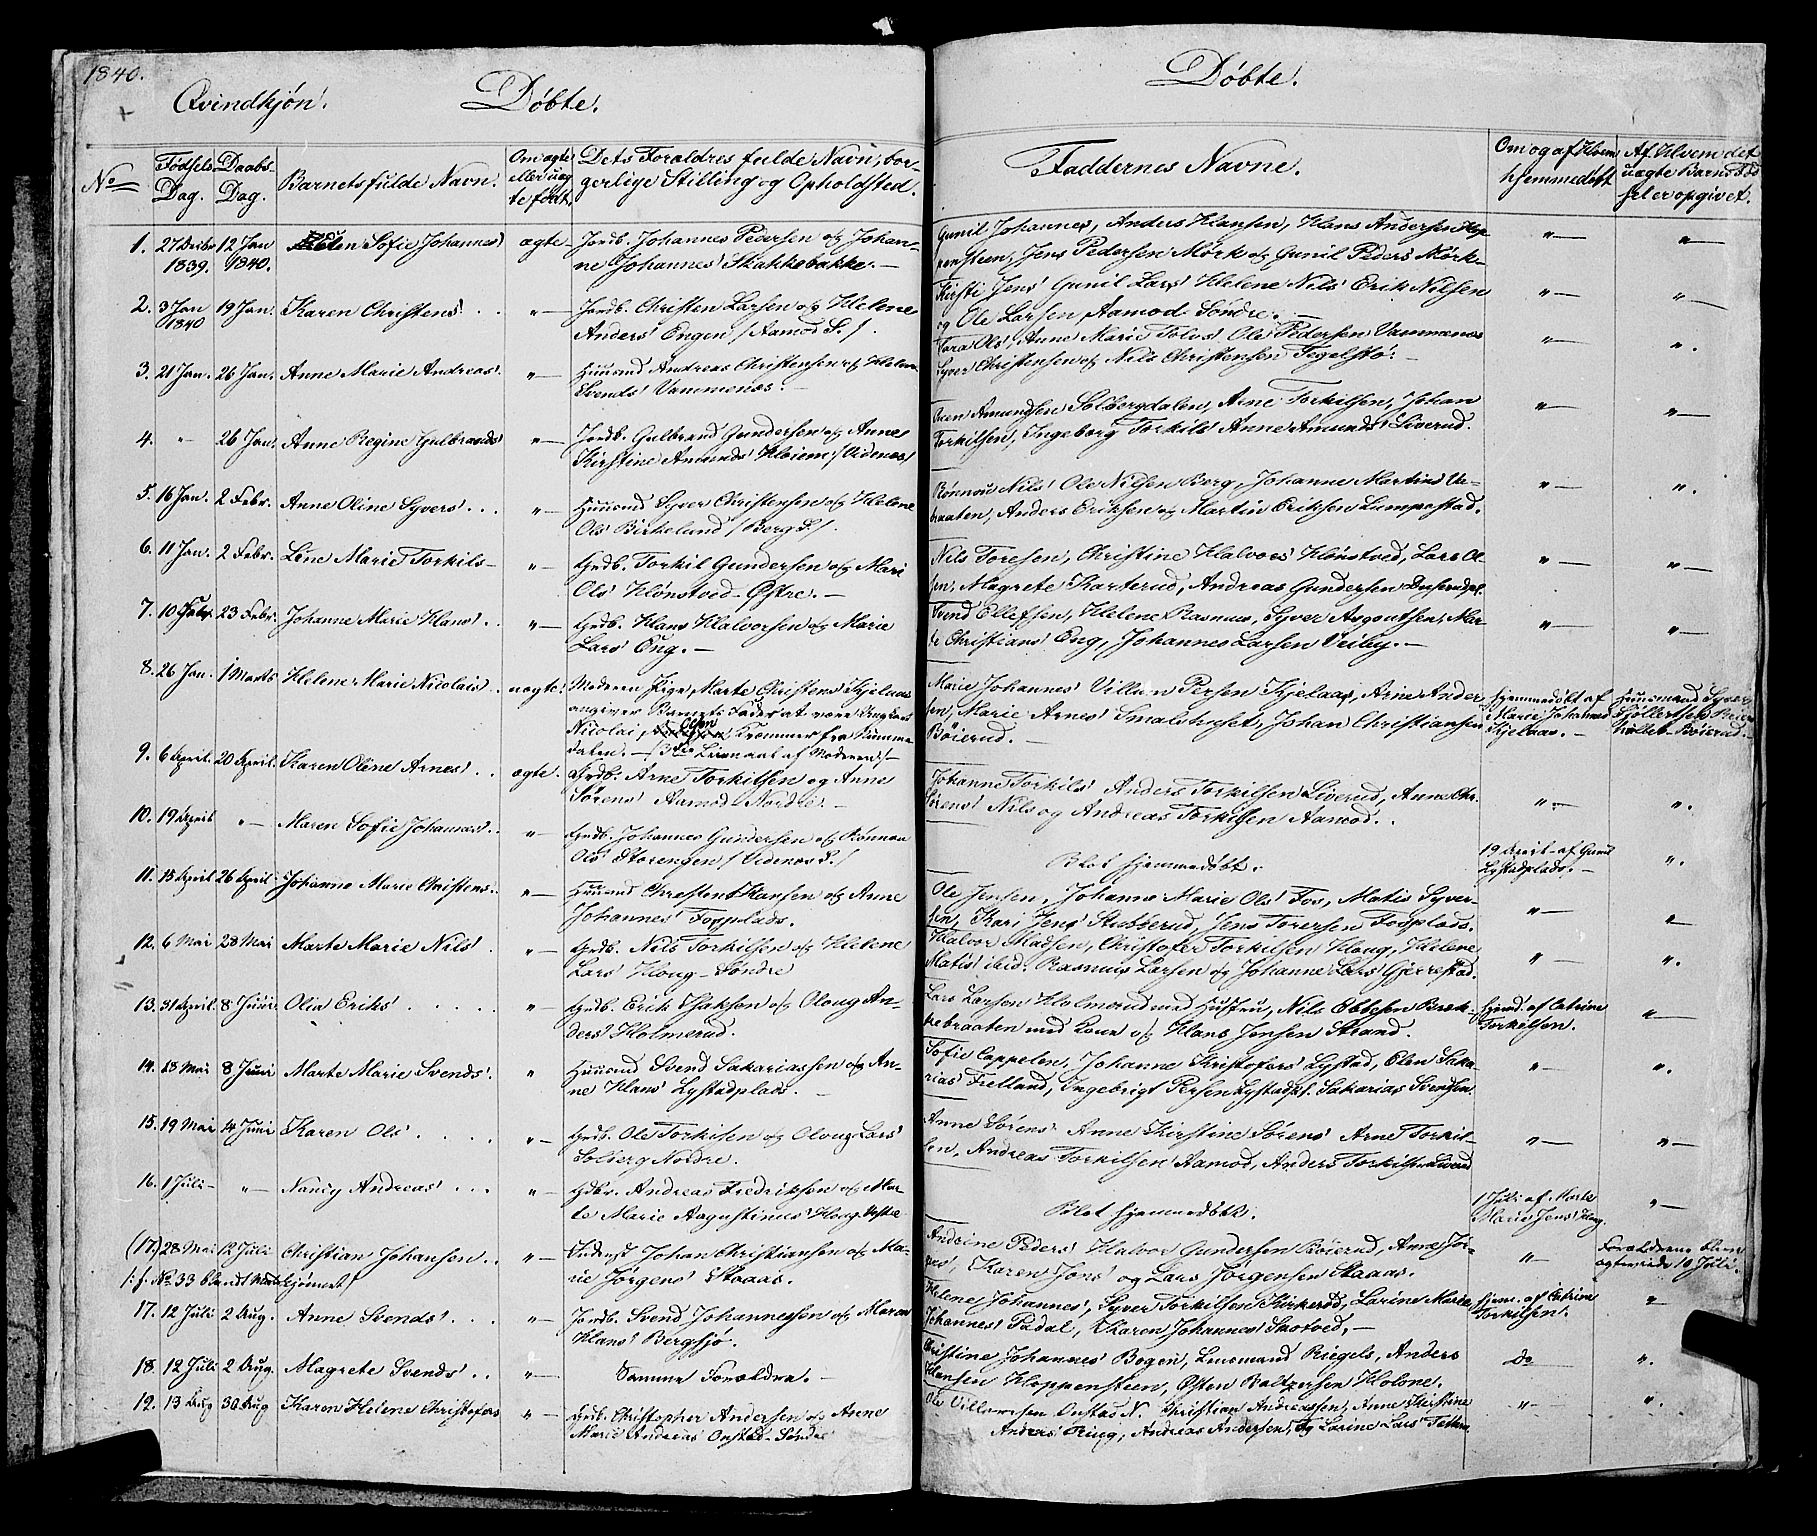 1840.
Qvindkjøn.
Døbte.
No
Fødsels Dag.
Daabs- Dag.
Barnets fulde Navn.
Om ægte eller uægte født.
Dets Foraldres fulde Navn, borgerlige Stilling og Opholdsted.
1. 27 Decbr 1839. 12 Jan 1840. Sofie Johannes' ægte- Jordb. Johannes Pedersen og Johan-
ne Johannes' Skakkebakke. —
2. 3 Jan 1840 19 Jan. Karen Christens' . . "— Jordb. Christen Larsen og Helene
Anders' Engen /Aamod S./.
3. 21 Jan. 26 Jan. Anne Marie Andreas'. "— Huusmd Andreas Christensen og Helene
Svends' Vammenæs. —
4. " 26 Jan. Anne Regine Gulbrands' "— Jordb. Gulbrand Gundersen og Anne
Kirstine Amunds' Hoiem /Videnæs/
5. 16 Jan. 2 Febr. Anne Oline Syvers' . . . "— Huusmd Syver Christensen og Helene
Ols' Birkelund /Berg S./.
6. 11 Jan. 2 Febr. Line Marie Torkils- "— Grdb. Torkil Gundersen og Mari
Ols' Hønstved Østre. —
7. 10 Febr. 23 Febr. Johanne Marie Hans' . . "— Grdb. Hans Halvorsen og Marie
Lars' Eng. —
8. 26 Jan. 1 Marts Helene Marie Nicolais' . uægte! Moderen Pige Marte Christens' Kjelaas
angiver Barnets Fader at være Ungkarl
Nicolai, Olsen Trommer fra Numme-
dalen. — /3die Leiermaal af Moderen/—
9. 6 April. 20 April. Karen Oline Arnes' . . ægte. Grdb. Arne Torkilsen og Anne
Sørens' Aamod Nordre. —
10. 19 April "— Maren Sofie Johannes' . "— Grdb. Johannes Gundersen og Rønnou
Ols' Storengen /Videnæs S./
11. 13 April 26 April Johanne Marie Christens. . "— Huusmd Christen Hansen og Anne
Johannes' Fosplads.
12. 6 Mai 28 Mai Marte Marie Nils' . "— Grdb. Nils Torkilsen og Helene
Lars' Houg Søndre
13. 31 April. 8 Juni. Olia Eriks' . . . . "— Grdb. Erik Isaksen og Oloug An-
ders' Holmerud.
14. 23 Mai 8 Juni Marte Marie Svends' . " Huusmd Svend Sakariassen og An-
ne Hans' Lystadplads. —
15. 19 Mai 14 Juni Karen Ols' . . . . "— Grdb. Ole Torkilsen og Oloug Lars'
Solberg Nordre.
16. 1 Juli- "— Nancy Andreas' . . . "— Gdbr. Andreas Fredriksen og Mar-
te Marie Augustinus' Houg Vestre
(17.) 28 Mai 12 Juli Christian Johansen . . "— Johan Christiansen og Ma-
/: f. No 33 blandt Mandkjønnet/ rie Jørgens' Skaaas.
17. 12 Juli 2 Aug. Anne Svends' . . . "— Jordb. Svend Johannessen og Maren
Hans' Bergsjø.
18. 12 Juli 2 Aug. Magrete Svends' . . "— Samme Forældre. —
19. 13 Aug 30 Aug Karen Helene Christofers "— Grdb. Christopher Andersen og Anne
Marie Andreas' Onstad Søndre
Døbte.
Faddernes Navne.
Om og af Hvem hjemmedøbt
Af Hvem det uægte Barns Fødsel er opgivet.
Gunil Johannes', Anders Hansen, Hans Andersen Klop-
pensteen, Jens Pedersen Mørk og Gunil Peders' Mørk- "— "—
Kirsti Jens' Gunil Lars' Helene Nils' Erik Nilsen
og Ole Larsen Aamod Søndre. — "— "—
Tora Ols', Anne Marie Tolvs' Ole Pedersen Vammenæs
Syver Christensen og Nils Christensen Tegelstø. — "— ".
Amundsen Solbergdalen, Arne Torkilsen, Johan
Torkilsen, Ingeborg Torkils' Anne Amunds' Liverud. "— "—
Rønnou Nils' Ole Nilsen Berg, Johanne Martins'
braaten, Anders Eriksen og Martin Eriksen Lumpestad. "— ".
Nils Toresen, Christine Halvors' Hønstved, Lars Ol-
sen, Magrete Karterud, Andreas Gundersen "— "—
Svend Ellefsen, Helene Rasmus', Syver Asgoutsen, Mar-
te Christians' Eng, Johannes Larsen Veiby. — "— "—
Marie Johannes' Villum Persen Kjelaas, Arne Ander-
sen, Marie Arnes' Smalstuset, Johan Christiansen
Böierud. —
Hjemmedøbt af
Marie Johannes'
Kjelaas. —
Huusmand Syver
Bøierud.
Johanne Torkils' Anders Torkilsen Liverud, Anne Chr.
Sørens' Nils og Andreas Torkilsen Aamod. . "— ".
Blot hjemmedøbt. 19 April af Gunil
Lystadplads. — ".
Ole Jensen, Johanne Marie Ols' Fos, Matis Syver-
sen, Kari Jens' Stubberud, Jens Toresen Fosplads. "— "
Halvor Madsen, Christofer Torkilsen Houg, Helene
Matis' ibid. Rasmus Larsen og Johanne Lars' Gjerrestad. "— ".
Lars Larsen Holmerud med Hustru, Nils Ebbesen Bræk-
kebraaten med Kone og Hans Jensen Strand. Hjemd. af Catrine
Torkilsen. "—
Sofie Cappelen, Johanne Kristofers' Lystad, Elen Saka-
rias' Fretland, Ingebrigt Persen Lystadpl. Sakarias Svendsen "— ".
Anne Sørens' Anne Kirstine Sørens' Arne Torkil-
sen, Andreas Torkilsen Aamod, Anders Torkilsen Liverud "— "—
Blot hjemmedøbt. 1 Juli af Marte
Marie Jens' Houg. "—
Andrine Peders' Halvor Gundersen Bøierud, Anne Jør-
gens', Karen Jons' og Lars Jørgensen Skaaas. "— Forældrene bleve
ægteviede 10 Juli.
Helene Johannes', Syver Torkilsen Kirkerød, Larine Marie
Johannes' Padal, Karen Johannes' Smotved. — Hjem. af Catrine
Torkilsen. "
Christine Johannes' Bogen, Lensmand Riegels, Anders
Hansen Kloppensteen, Østen Baltzersen Holone. do ".
Ole Villumsen Onstad N. Christian Andreassen, Anne Kirstine
Anders' Ring, Andreas Andersen, og Larine Lars' "— ".